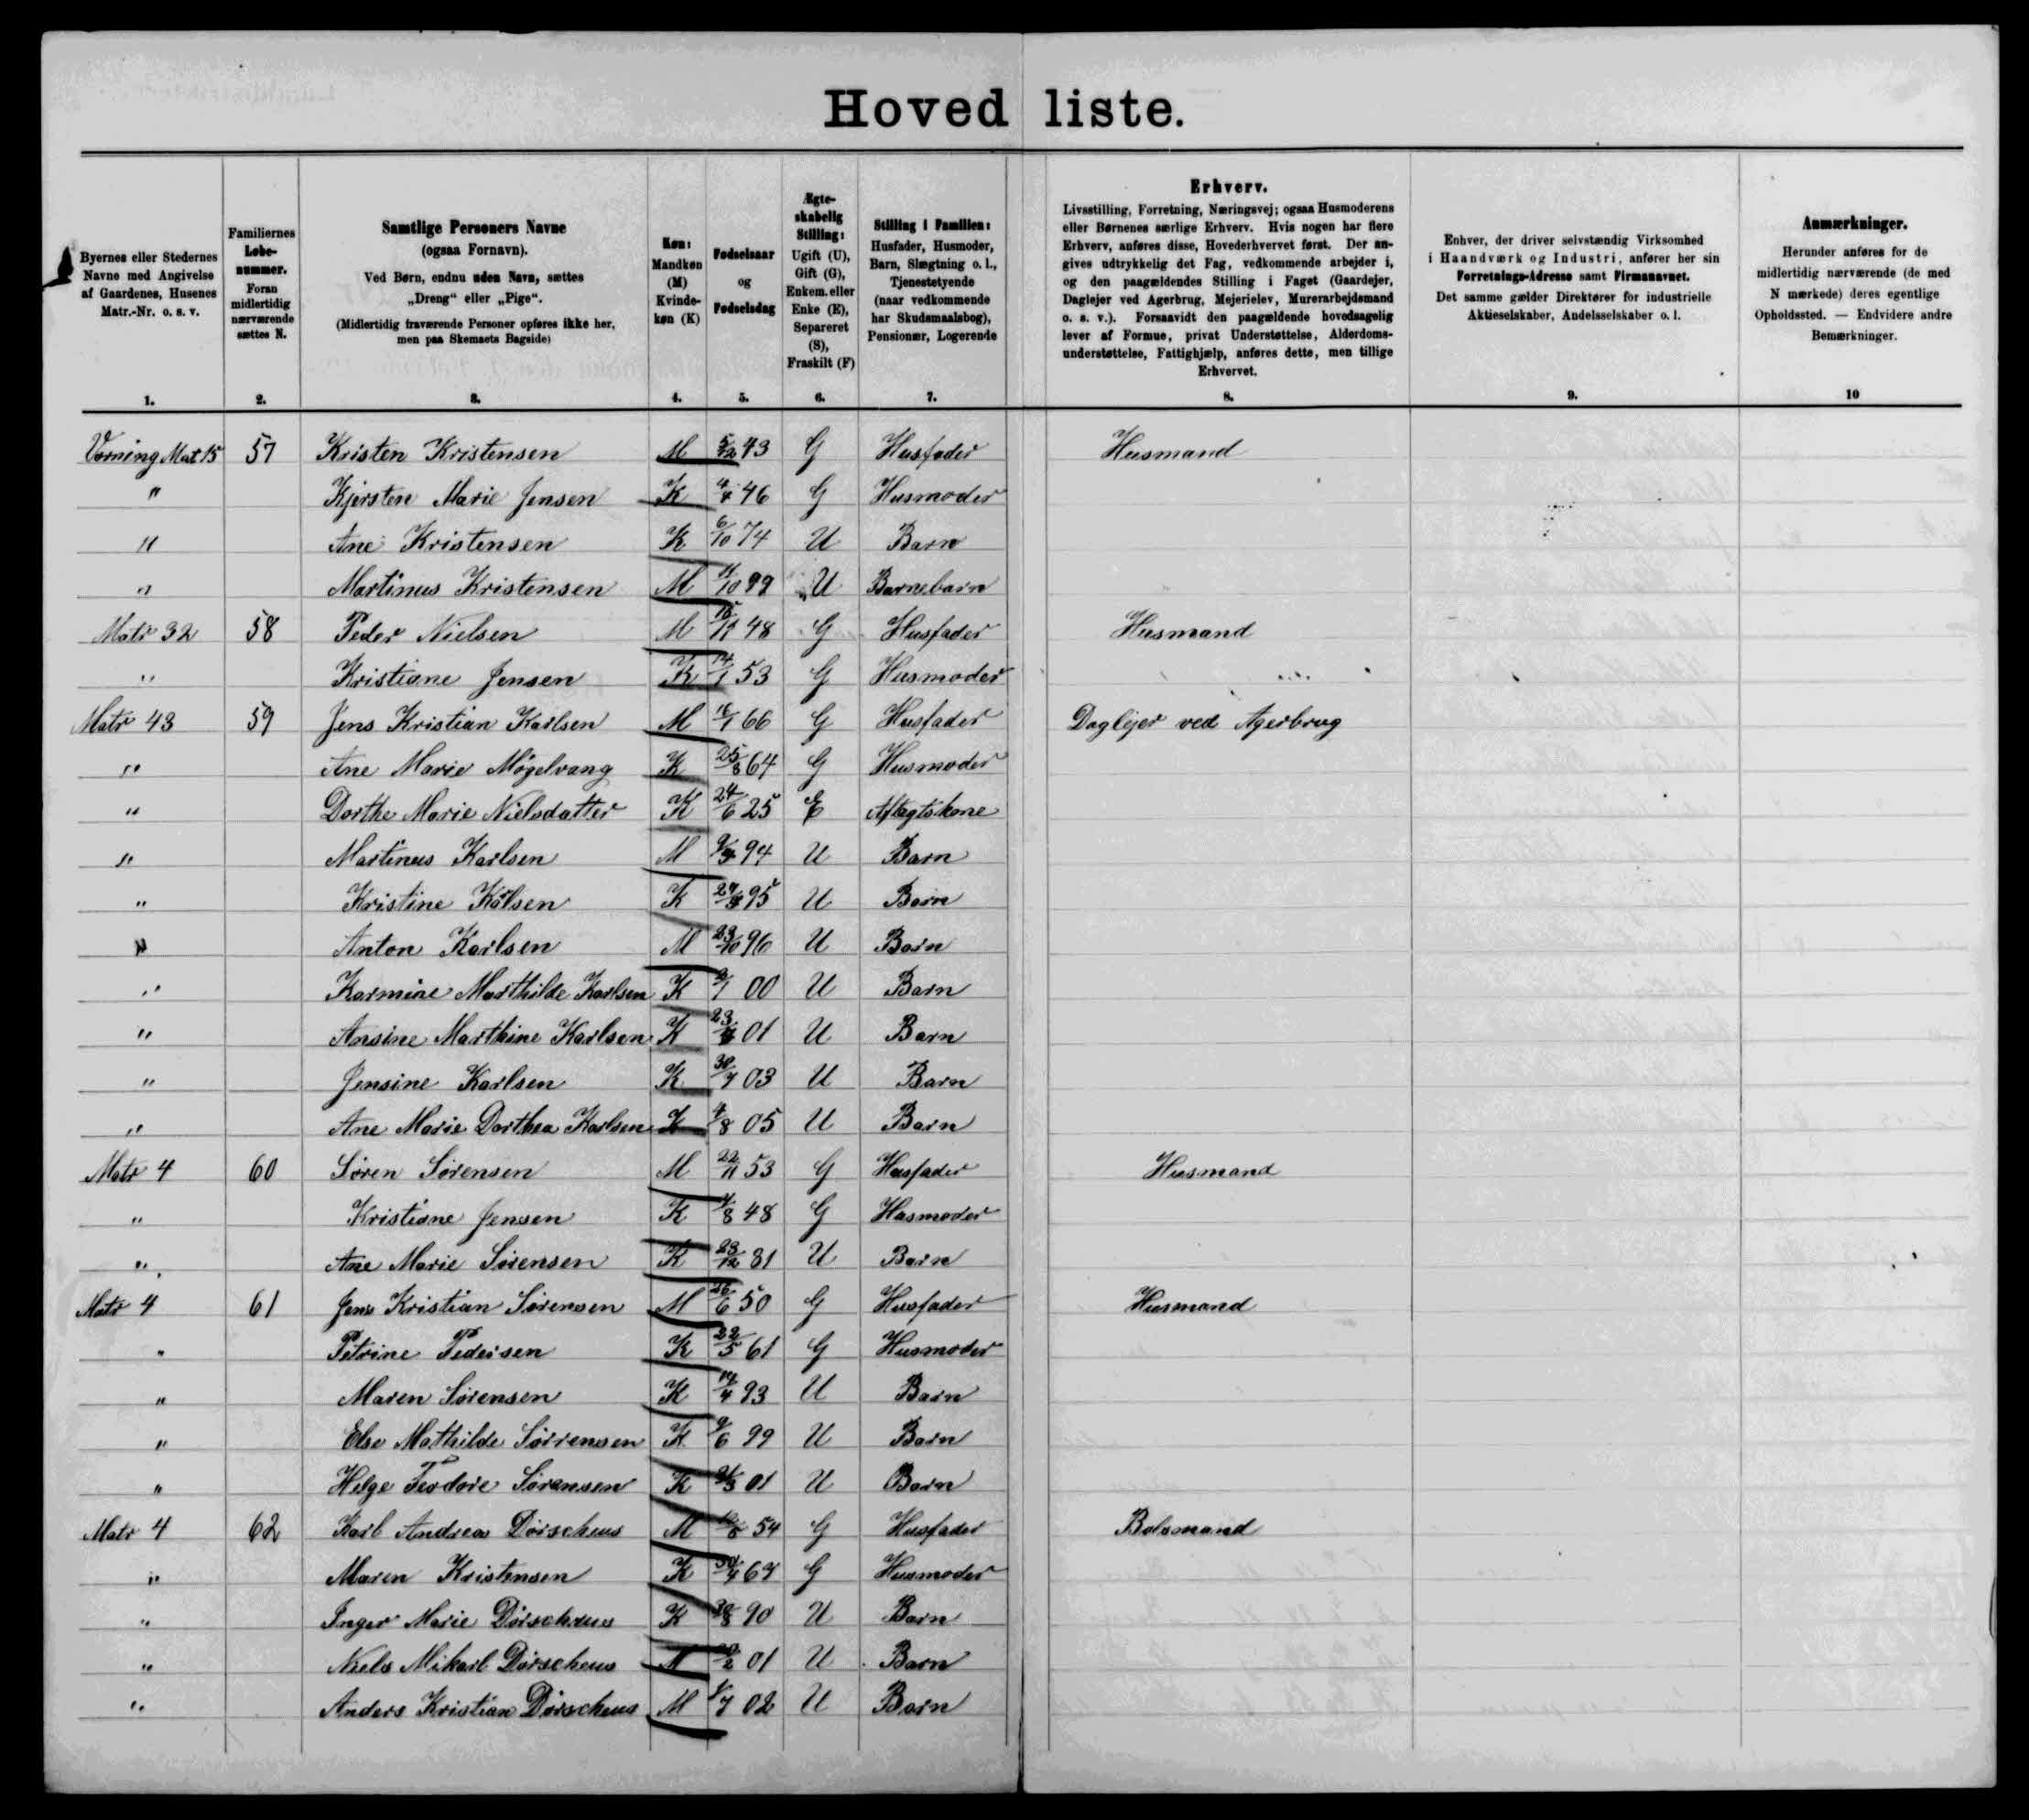 Hoved liste.
Byernes eller Stedernes Navne med Angivelse af Gaardenes, Husenes Matr.-Nr. o. s. v.
Familiernes Løbe-nummer. Foran midlertidig nærværende sættes N.
Samtlige Personers Navne (ogsaa Fornavn). Ved Børn, endnu uden Navn, sættes „Dreng“ eller „Pige“. (Midlertidig fraværende Personer opføres ikke her, men paa Skemaets Bagside)
Køn: Mandkøn (M) Kvinde-køn (K)
Fødselsaar og Fødselsdag
Ægte-skabelig Stilling: Ugift (U), Gift (G), Enkem. eller Enke (E), Separeret (S), Fraskilt (F)
Stilling i Familien: Husfader, Husmoder, Barn, Slægtning o. l., Tjenestetyende (naar vedkommende har Skudsmaalsbog), Pensionær, Logerende
Erhverv. Livsstilling, Forretning, Næringsvej; ogsaa Husmoderens eller Børnenes særlige Erhverv. Hvis nogen har flere Erhverv, anføres disse, Hovederhvervet først. Der angives udtrykkelig det Fag, vedkommende arbejder i, og den paagældendes Stilling i Faget (Gaardejer, Daglejer ved Agerbrug, Mejerielev, Murerarbejdsmand o. s. v.). Forsaavidt den paagældende hovedsagelig lever af Formue, privat Understøttelse, Alderdoms-understøttelse, Fattighjælp, anføres dette, men tillige Erhvervet.
Enhver, der driver selvstændig Virksomhed i Haandværk og Industri, anfører her sin Forretnings-Adresse samt Firmanavnet. Det samme gælder Direktører for industrielle Aktieselskaber, Andelsselskaber o. l.
Anmærkninger. Herunder anføres for de midlertidig nærværende (de med N mærkede) deres egentlige Opholdssted. — Endvidere andre Bemærkninger.
1. 2. 3. 4. 5. 6. 7. 8. 9. 10
Vorning Mat 15 57 Kristen Kristensen M 5/12 43 G Husfader Husmand
" Kjersten Marie Jensen K 4/4 46 G Husmoder
" Ane Kristensen K 6/10 74 U Barn
" Martinus Kristensen M 11/10 99 U Barnebarn
Matr 32 58 Peder Nielsen M 48 G Husfader Husmand
" Kristiane Jensen K 14/1 53 G Husmoder
Matr 43 59 Jens Kristian Karlsen M 16/1 66 G Husfader Daglejer ved Agerbrug
" Ane Marie Møgelvang K 25/8 64 G Husmoder
" Dorthe Marie Nielsdatter K 24/6 25 E Aftægtskone
" Martinus Karlsen M 94 U Barn
" Kristine Kalsen K 95 U Barn
" Anton Karlsen M 23/10 96 U Barn
" Karmine Marthilde Karlsen K 00 U Barn
" Ansine Marthine Karlsen K 01 U Barn
" Jensine Karlsen K 30/7 03 U Barn
" Ane Marie Dorthea Karlsen K 4/8 05 U Barn
Matr 4 60 Søren Sørensen M 22/11 53 G Husfader Husmand
" Kristiane Jensen K 48 G Husmoder
" Ane Marie Sørensen K 23/12 81 U Barn
Matr 4 61 Jens Kristian Sørensen M 26/6 50 G Husfader Husmand
" Petrine Pedersen K 22/5 61 G Husmoder
" Maren Sørensen K 93 U Barn
" Else Mathilde Sørrensen K 9/6 99 U Barn
" Helge Teodore Sørensen K 01 U Barn
Matr 4 62 Karl Andreas Dørscheus M 54 G Husfader Bolsmand
" Maren Kristensen K 67 G Husmoder
" Inger Marie Dørscheus K 90 U Barn
" Niels Mikael Dørscheus M 01 U Barn
" Anders Kristian Dørscheus M 02 U Barn